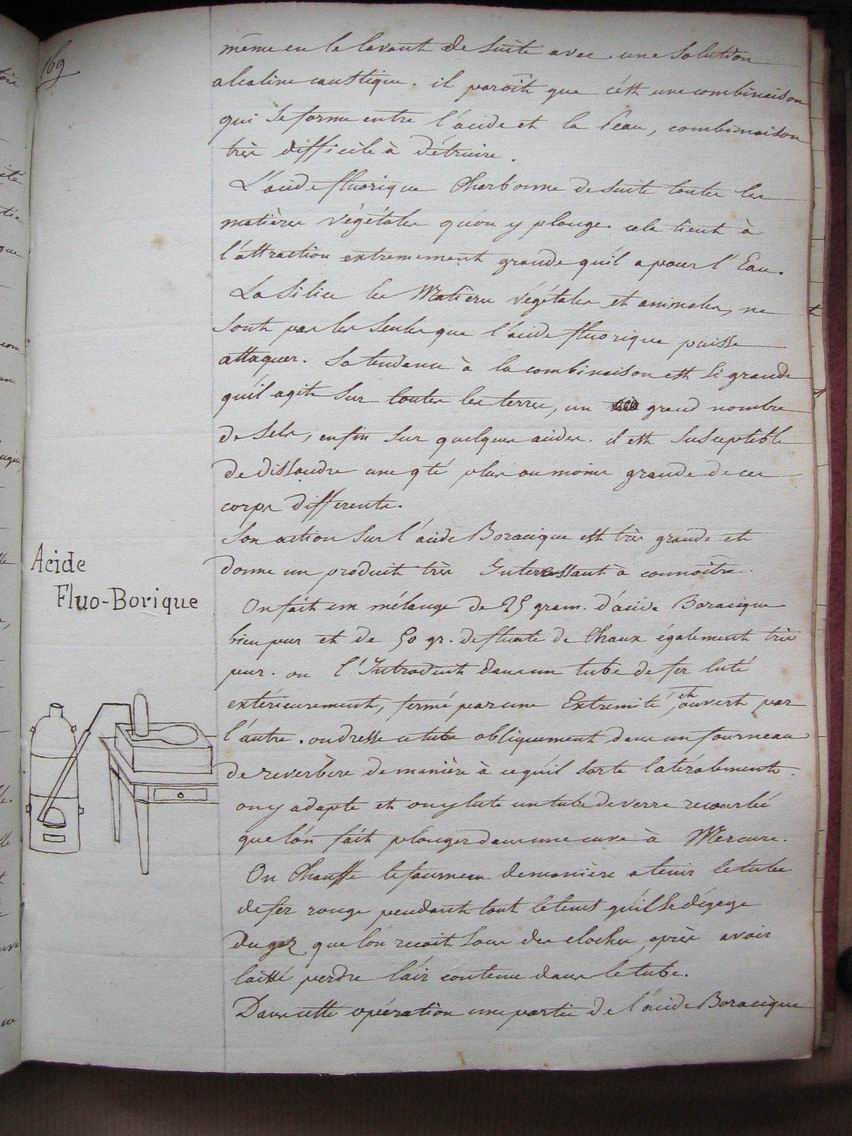 169
même en le lavant de suite avec une solution
alcaline caustique. il paroît que c'est une combinaison
qui se forme entre l'acide et la Peau, combinaison
très difficile à détruire.
L'acide fluorique Charbonne de suite toutes les
matières végétales qu'on y plonge. cela tient à
l'attraction extremement grande qu'il a pour l'Eau.
La Silice les Matieres végétales et animales, ne
Sont pas les Seules que l'acide fluorique puisse
attaquer. Sa tendance à la combinaison est Si grande
qu'il agit Sur toutes les terres, un grand nombre
de Sels, enfin Sur quelques acides. il est Susceptible
de dissoudre une qté plus ou moins grande de ces
corps differents.
Son action Sur l'acide Boracique est très grande et
donne un produit très Interessant à connoître.
Acide
Fluo-Borique
On fait un mélange de 25 gram. d'acide Boracique
bien pur et de 50 gr. de fluate de Chaux également très
pur. on l'Introduit dans un tube de fer luté
extérieurement, fermé par une Extremité, et ouvert par
l'autre. on dresse ce tube obliquement dans un fourneau
de reverbere de manière à ce qu'il sorte latéralement.
on y adapte et on y lute un tube de verre recourbé
que l'on fait plonger dans une cuve à Mercure.
On Chauffe le fourneau de manière a tenir le tube
de fer rouge pendant tout le tems qu'il Se dégage
du gaz que l'on reçoit Sous des cloches, après avoir
laissé perdre l'air contenu dans le tube.
Dans cette opération une partie de l'acide Boracique